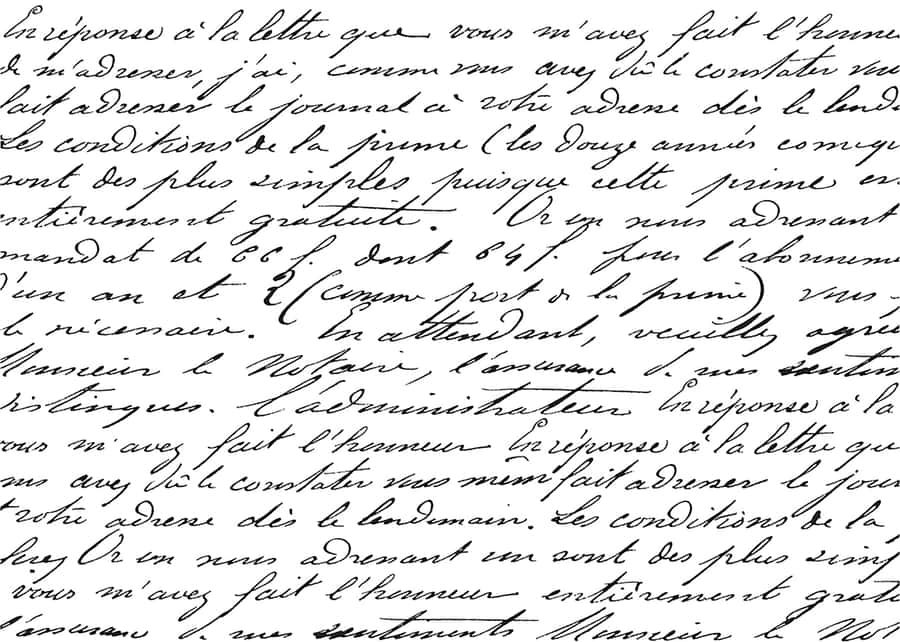 En réponse à la lettre que vous m'avez fait l'honne
de m'adresser, j'ai, comme vous avez dû le constater vou
fait adresser le journal à votre adresse dès le lend
Les conditions de la prime (les douze années
sont des plus simples puisque cette prime es
entièrement gratuite. Or en nous adressant
mandat de 66 f. dont 64 f. pour l'abonneme
d'un an et 2 (comme port de la prime) vous
le nécessaire. En attendant, veuillez agrée
Monsieur le Notaire, l'assurance de mes sentim
distingués. L'administrateur En réponse à la
vous m'avez fait l'honneur En réponse à la lettre que
vous avez dû le constater vous mêm fait adresser le jour
votre adresse dès le lendemain. Les conditions de la
Or en nous adressant un sont des plus simp
vous m'avez fait l'honneur entièrement gratu
l'assurance de mes sentiments Monsieur le Not